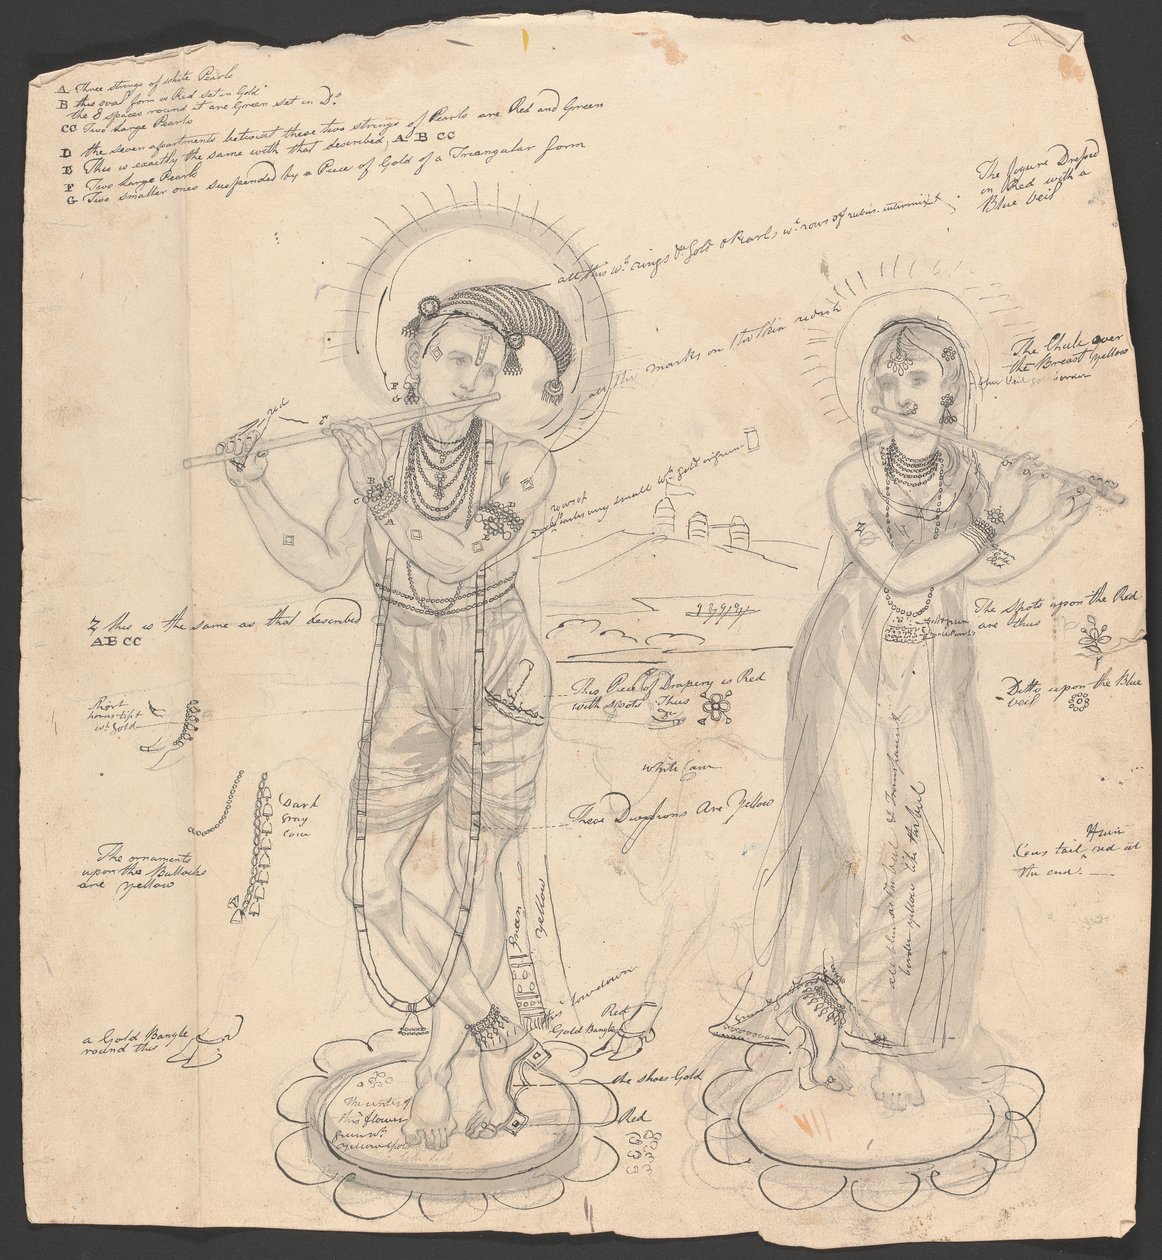 A Three strings of white Pearls
B this oval form is Red set in Gold
the 8 spaces round it are Green set in Do.
CC Two Large Pearls
D the seven apartments betwixt these two strings of Pearls are Red and Green
E This is exactly the same with that described A B CC
F Two large Pearls
G Two smaller ones suspended by a Piece of Gold of a Triangular form
The figure Dressed
in Red with a
Blue Veil
all this wt. rings of Gold & Pearls wt. rows of rubies intermixt
all the marks on the skin redish
The Chule over
the Breast yellow
blue Veil gold border
F
G
red
D
C
C
B
A
B
E
rows of
pearls very small wt. gold
Z
Green
Gold
Red
Z this is the same as that described
A B CC
The Spots upon the Red
are thus
Ditto upon the Blue
Veil
Short
horns tipt
wt. Gold
This Piece of Drapery is Red
with spots Thus
White Cow
These Divisions Are Yellow
Dark
Gray
Cow
The ornaments
upon the Bullocks
are yellow
Cows tail red at
the end
all blue as the veil & transparent
border yellow like the veil
Green
yellow
this low down
Red
Gold Bangle
a Gold Bangle
round this
the shoes Gold
Red
The
this flower
Green wt.
yellow